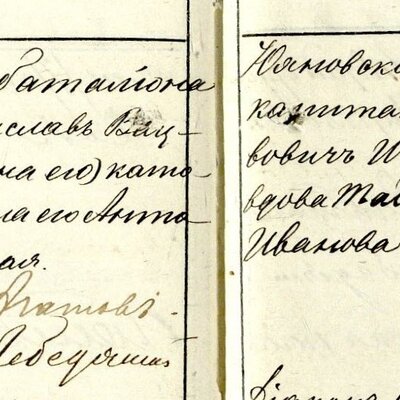 баталіона
славъ Вац-
на его) като-
ла его Анто-
ая.
Агатовъ.
Лебедяни
Юяновско
капита
вовичъ И
вдова Та
Иванова